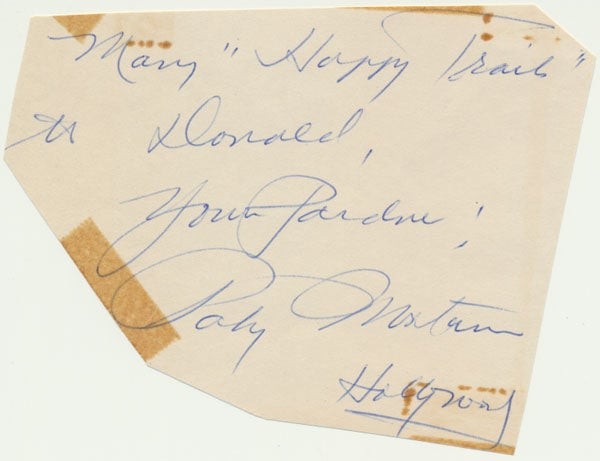 Many "Happy Trails"
to Donald,
Your Pardner!
Patsy Montana
Hollywood